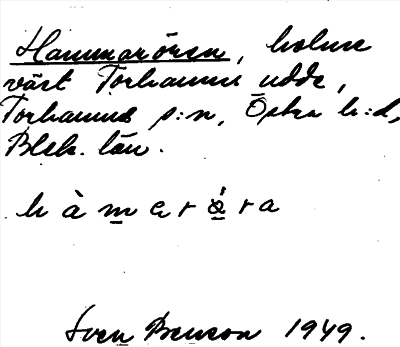 Hammarören, holme
väst Torhamns udde,
Torhamns s:n, Östra h:d,
Blek. län.
h à m e r ǿ r a
Sven Benson 1949.